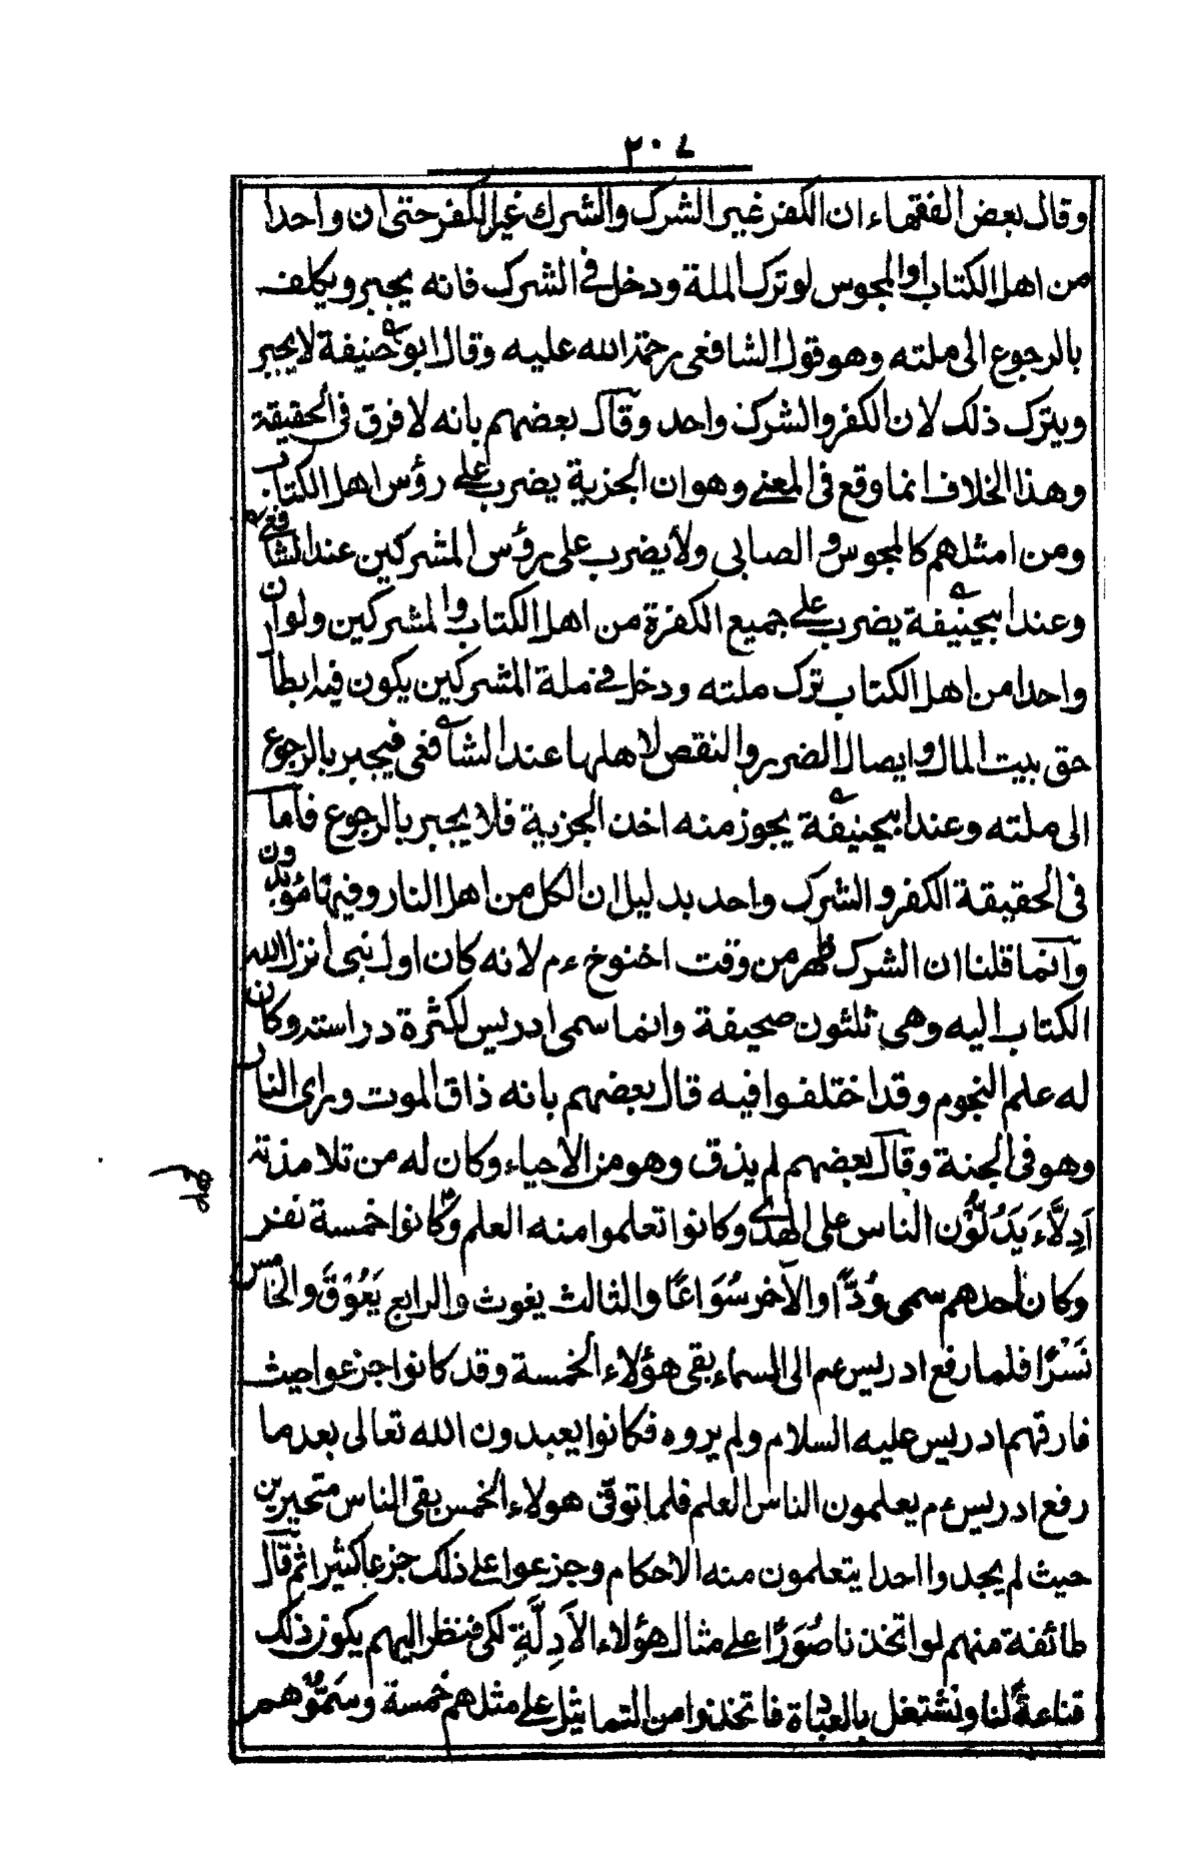 ٢٠٧
وقال بعض الفقهاء ان الكفر غير الشرك والشرك غير الكفر حتى ان واحدا
من اهل الكتاب او المجوس لو ترك الملة ودخل في الشرك فانه يجبر ويكلف
بالرجوع الى ملته وهو قول الشافعي رحمة الله عليه وقال ابو حنيفة لا يجبر
ويترك ذلك لان الكفر والشرك واحد وقال بعضهم بانه لا فرق في الحقيقة
وهذا الخلاف انما وقع في المعنى وهو ان الجزية يضرب على رؤس اهل الكتاب
ومن امثلهم كالمجوس والصابى ولا يضرب على رؤس المشركين عند الشافعي
وعند ابيحنيفة يضرب على جميع الكفرة من اهل الكتاب والمشركين ولو ان
واحدا من اهل الكتاب ترك ملته ودخل في ملة المشركين يكون فيه ابطال
حق بيت المال وايصال الضرر والنقص لاهلها عند الشافعي فيجبر بالرجوع
الى ملته وعند ابيحنيفة يجوز منه اخذ الجزية فلا يجبر بالرجوع فاما
في الحقيقة الكفر والشرك واحد بدليل ان الكل من اهل النار وفيها مؤبدون
وانما قلنا ان الشرك ظهر من وقت اخنوخ ءم لانه كان اول نبى انزل الله
الكتاب اليه وهى ثلثون صحيفة وانما سمى ادريس لكثرة دراسته وكان
له علم النجوم وقد اختلفوا فيه قال بعضهم بانه ذاق الموت وراى النار
وهو في الجنة وقال بعضهم لم يذق وهو من الاحياء وكان له من تلامذته
اَدِلَّاءَ يَدُلُّوُن الناس على الهدى وكانوا تعلموا منه العلم وكانوا خمسة نفر
وكان احدهم سمى وُدًّا والآخر سُوَاعًا والثالث يغوث والرابع يَعُوَقَ والخامس
نَسْرًا فلما رفع ادريس عم الى السماء بقى هؤلاء الخمسة وقد كانوا جزعوا حيث
فارقهم ادريس عليه السلام ولم يروه فكانوا يعبدون الله تعالى بعد ما
رفع ادريس ءم يعلمون الناس العلم فلما توفى هولاء الخمس بقى الناس متحيرين
حيث لم يجدوا احدا يتعلمون منه الاحكام وجزعوا على ذلك جزعا كثيرا ثم قال
طائفة منهم لو اتخذنا صُوَرًا على مثال هؤلاء الاَدِلَّةِ لكى فننظر اليهم يكون ذلك
قناعةً لنا ونشتغل بالعبادة فاتخذوا من التماثيل على مثلهم خمسة وسَمَّوُهم